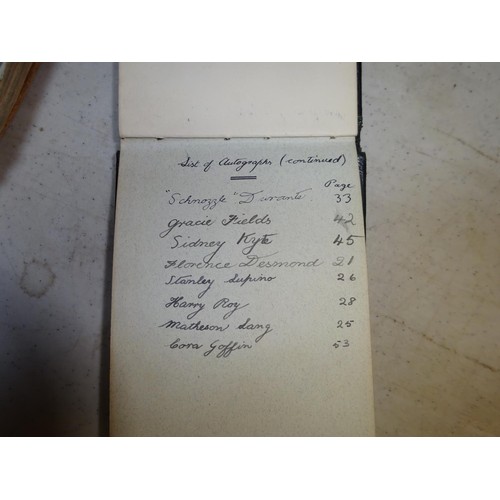 List of Autographs (continued)
Page
"Schnozzle" Durante 33
Gracie Fields 42
Sidney Kyte 45
Florence Desmond 21
Stanley Lupino 26
Harry Roy 28
Matheson Lang 25
Cora Goffin 53